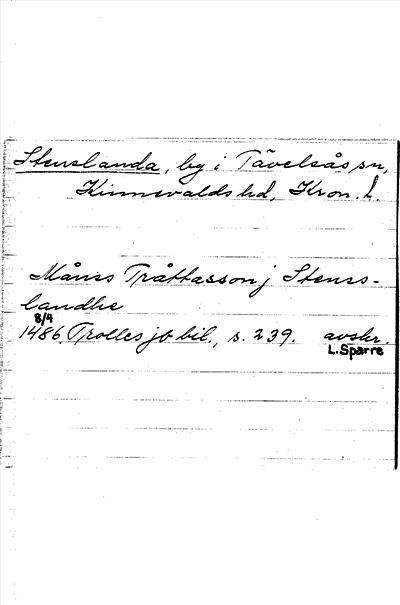 Stenslanda, by i Tävelsås sn,
Kinnevalds hd, Kron. l.
Måns Tråttasson j Stens-
landhe
8/4
1486. Trolles jb bil., s. 239. avskr.
L.Sparre